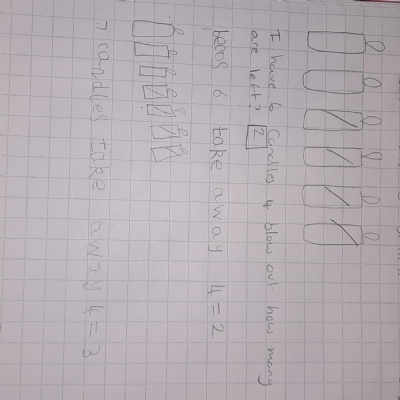 I have 6 Candles 4 blow out how many
are left? 2
becos 6 take away 4=2
7 candles take away 4=3